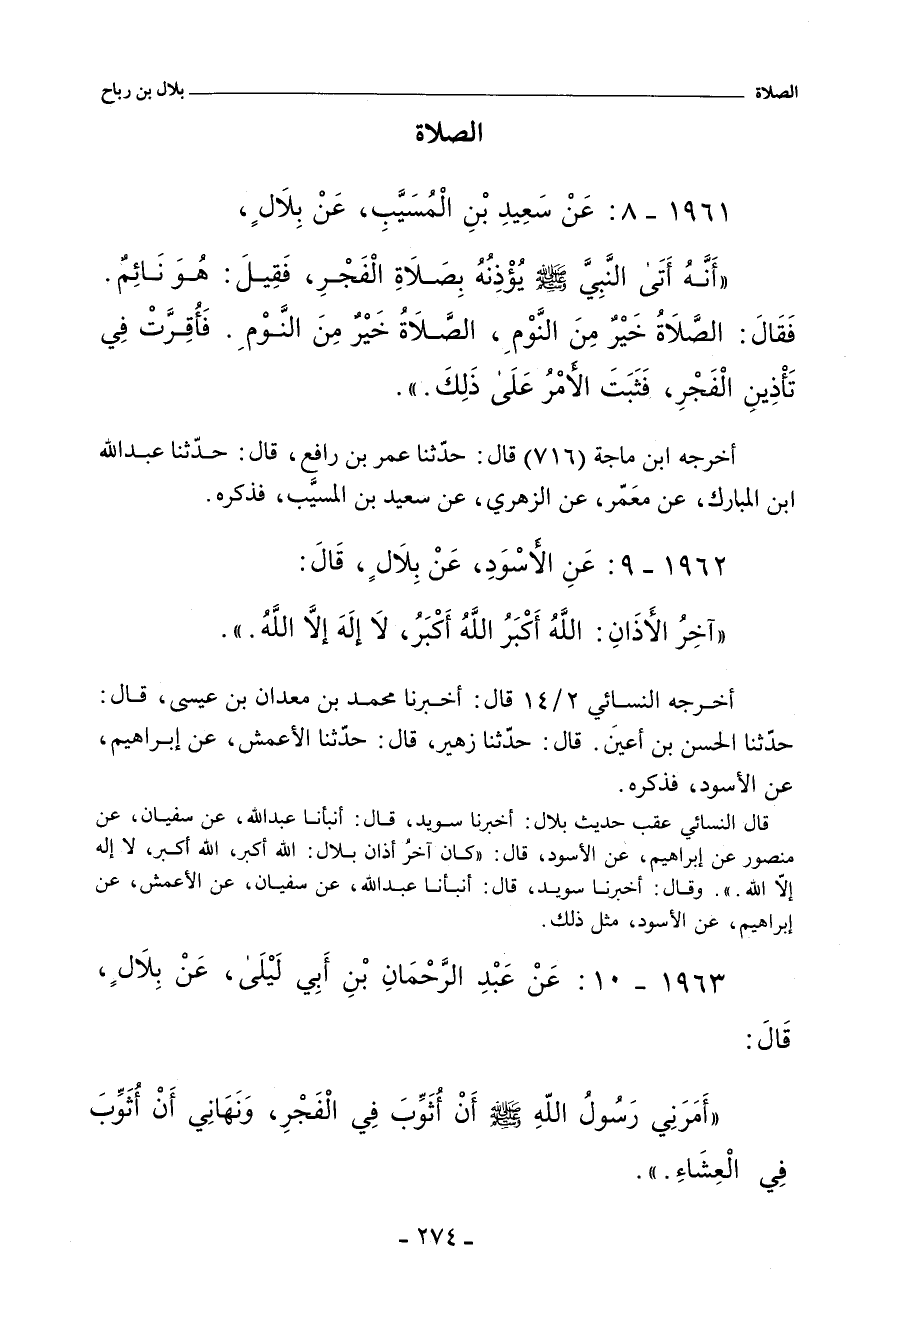 الصلاة ــــــــــــــــ بلال بن رباح
الصلاة
١٩٦١ ـ ٨: عَنْ سَعِيدِ بْنِ الْمُسَيَّبِ، عَنْ بِلَالٍ،
«أَنَّهُ أَتَىٰ النَّبِيَّ ﷺ يُؤْذِنُهُ بِصَلَاةِ الْفَجْرِ، فَقِيلَ: هُوَ نَائِمٌ.
فَقَالَ: الصَّلَاةُ خَيْرٌ مِنَ النَّوْمِ، الصَّلَاةُ خَيْرٌ مِنَ النَّوْمِ. فَأُقِرَّتْ فِي
تَأْذِينِ الْفَجْرِ، فَثَبَتَ الْأَمْرُ عَلَىٰ ذَلِكَ.».
أخرجه ابن ماجة (٧١٦) قال: حدّثنا عمر بن رافع، قال: حدّثنا عبدالله
ابن المبارك، عن معَمّر، عن الزهري، عن سعيد بن المسيَّب، فذكره.
١٩٦٢ ـ ٩: عَنِ الْأَسْوَدِ، عَنْ بِلَالٍ، قَالَ:
«آخِرُ الْأَذَانِ: اللَّهُ أَكْبَرُ اللَّهُ أَكْبَرُ، لَا إِلَهَ إِلَّا اللَّهُ.».
أخرجه النسائي ١٤/٢ قال: أخبرنا محمد بن معدان بن عيسى، قال:
حدّثنا الحسن بن أعينَ. قال: حدّثنا زهير، قال: حدّثنا الأعمش، عن إبراهيم،
عن الأسود، فذكره.
قال النسائي عقب حديث بلال: أخبرنا سويد، قال: أنبأنا عبدالله، عن سفيان، عن
منصور عن إبراهيم، عن الأسود، قال: «كان آخرُ أذان بلال: الله أكبر، الله أكبر، لا إله
إلّا الله.». وقال: أخبرنا سويد، قال: أنبأنا عبدالله، عن سفيان، عن الأعمش، عن
إبراهيم، عن الأسود، مثل ذلك.
١٩٦٣ ـ ١٠: عَنْ عَبْدِ الرَّحْمَانِ بْنِ أَبِي لَيْلَىٰ، عَنْ بِلَالٍ،
قَالَ:
«أَمَرَنِي رَسُولُ اللّهِ ﷺ أَنْ أُثَوِّبَ فِي الْفَجْرِ، وَنَهَانِي أَنْ أُثَوِّبَ
فِي الْعِشَاءِ.».
ـ ٢٧٤ ـ